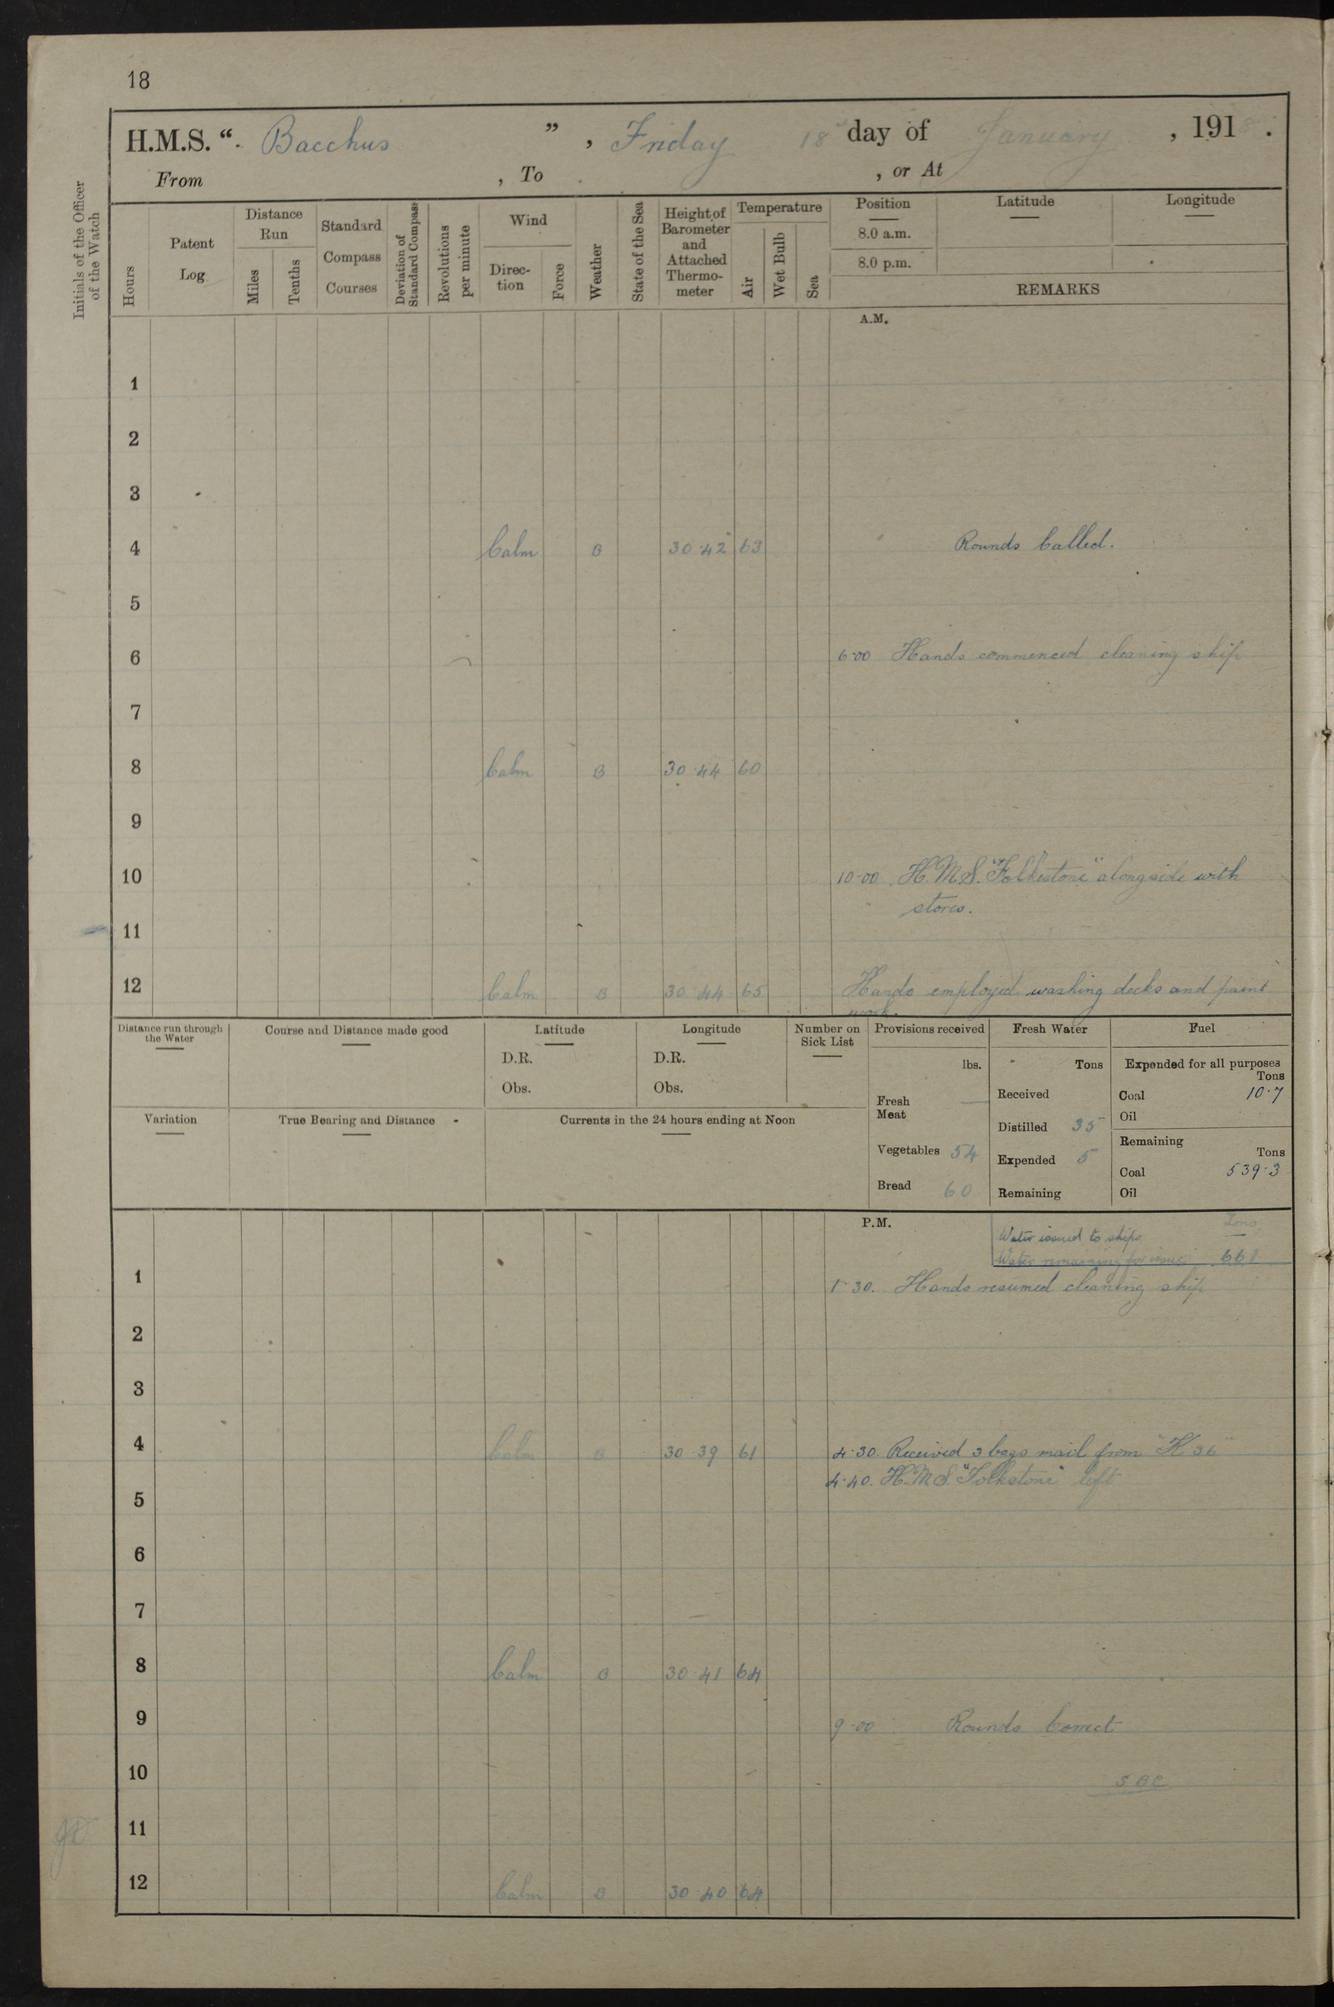 18
H.M.S. “ Bacchus ” , Friday 18 day of January , 1918 .
From , To , or At
Initials of the Officer of the Watch
Hours
Patent Log
Distance Run
Miles
Tenths
Standard Compass Courses
Deviation of Standard Compass
Revolutions per minute
Wind
Direction
Force
Weather
State of the Sea
Height of Barometer and Attached Thermometer
Temperature
Air
Wet Bulb
Sea
Position Latitude Longitude
8.0 a.m.
8.0 p.m.
REMARKS
A.M.
1
2
3
4 Calm B 30.42 63 Rounds Called.
5
6 6.00 Hands commenced cleaning ship
7
8 Calm B 30.44 60
9
10 10.00 H.M.S. "Folkestone" alongside with
stores.
11
12 Calm B 30.44 65 Hands employed washing decks and paint
work.
Distance run through the Water
Course and Distance made good
Latitude
D.R.
Obs.
Longitude
D.R.
Obs.
Number on Sick List
Variation
True Bearing and Distance
Currents in the 24 hours ending at Noon
Provisions received
lbs.
Fresh Meat —
Vegetables 54
Bread 60
Fresh Water
Tons
Received
Distilled 35
Expended 5
Remaining
Fuel
Expended for all purposes
Tons
Coal 10.7
Oil
Remaining
Tons
Coal 539.3
Oil
P.M.
Tons
Water issued to ships —
Water remaining for issue 661
1 1.30. Hands resumed cleaning ship
2
3
4 Calm B 30.39 61 4.30. Received 3 bags mail from "K 36"
4.40. H.M.S. "Folkstone" left
5
6
7
8 Calm B 30.41 64
9 9.00 Rounds Correct
10
11
12 Calm B 30.40 64